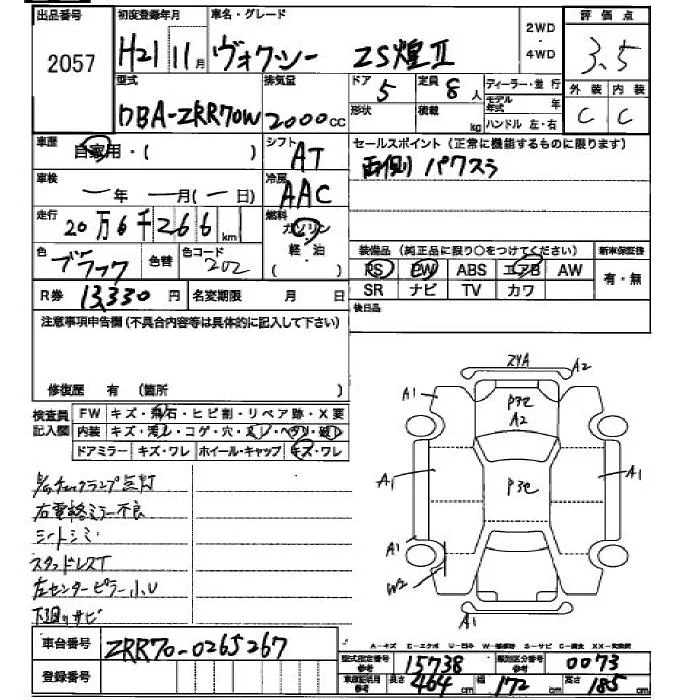 出品番号 初度登録年月 車名・グレード 2WD 評価点
2057 H21 11月 ヴォクシー ZS煌II ・4WD 3.5
型式 排気量 ドア 定員 ディーラー・並行 外装 内装
DBA-ZRR70W 2000cc 5 8人 モデル年式 年 C C
形状 積載 kg ハンドル 左・右
車歴 自家用・( ) シフト AT セールスポイント(正常に機能するものに限ります)
両側パワスラ
車検 ー年ー月(ー日) 冷房 AAC
走行 20万6千266km 燃料 ガソリン
軽油 装備品(純正品に限り○をつけてください) 新車保証書
色 ブラック 色替 色コード 202 ( ) PS PW ABS エアB AW 有・無
R券 13,330円 名変期限 月 日 SR ナビ TV カワ
後日品
注意事項申告欄(不具合内容等は具体的に記入して下さい)
修復歴 有 (箇所
検査員記入欄 FW キズ・飛石・ヒビ割・リペア跡・X要
内装 キズ・汚レ・コゲ・穴・
ドアミラー キズ・ワレ ホイール・キャップ キズ・ワレ
A2
A1 P3C A1
A2
A1 P3C A1
A1
W2
A1
チェックランプ点灯
右電格ミラー不良
シートシミ
スタッドレスT
左センターピラー小U
下回りサビ
A-キズ E-エクボ U-凹み W-補修跡 S-サビ C-腐食 XX-交換済
車台番号 ZRR70-0265267 型式指定番号 参考 15738 類別区分番号 参考 0073
登録番号 車庫証明用 参考 長さ 464cm 幅 172cm 高さ 185cm